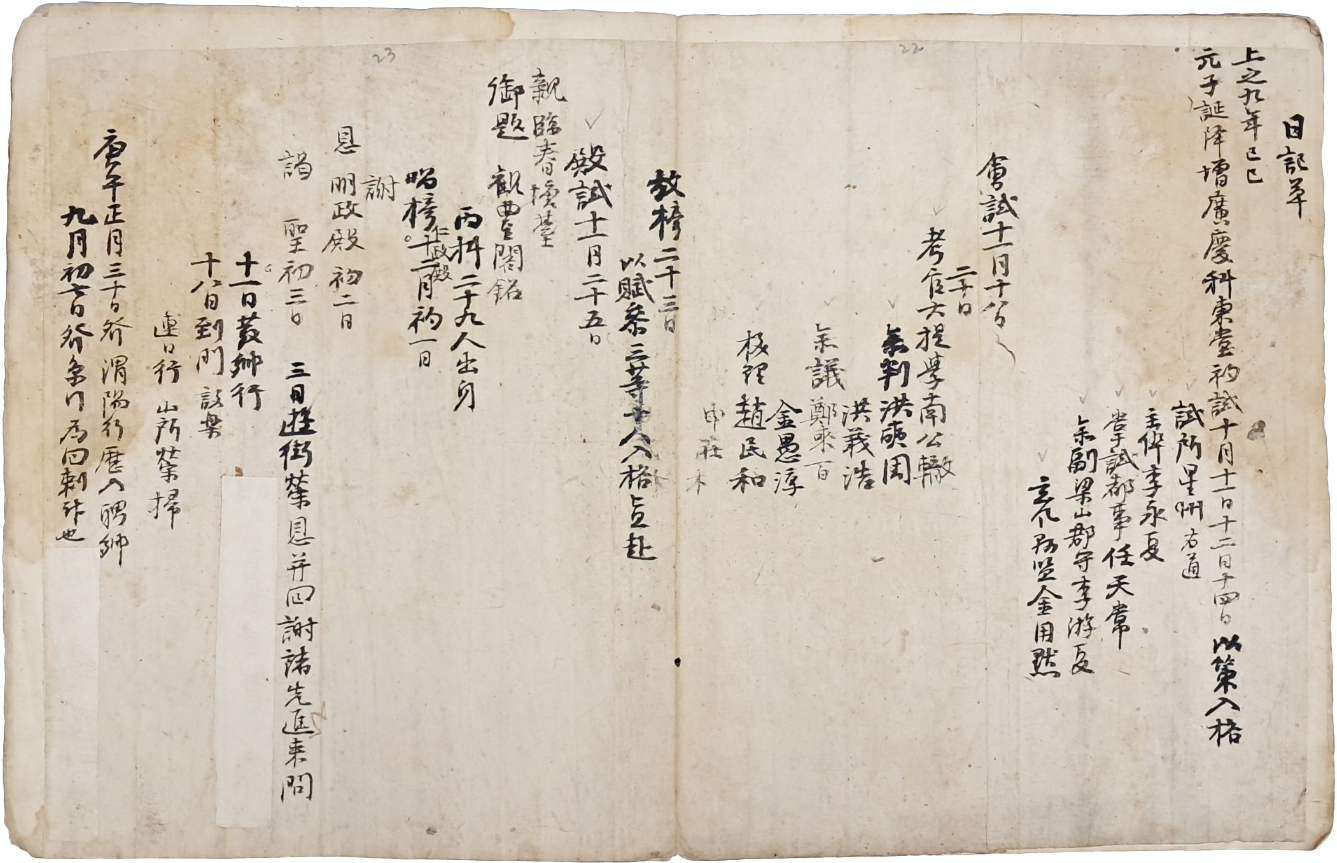 日記草
上之九年己巳
元子誕降增廣慶科東堂初試十月十一日十二日十四日 以策入格
試所星州右道
主倅李永夏
掌試都事任天常
參副梁山郡守李游夏
金用默
會試十一月十八日
二十日
考官大提學南公轍
參判洪奭周
洪義浩
參議鄭來百
金愚淳
校理趙民和
申在
22
放榜二十三日
以賦參三等十八入格直赴
殿試十一月二十五日
親臨春塘臺
御題 觀豊閣銘
丙科二十九人出身
唱榜十二月初一日
仁政殿
謝
恩 明政殿 初二日
謁 聖初三日 三日遊街榮恩并回謝諸先進來問
十一日發鄉行
十八日到門設樂
連日行 山所榮掃
庚午正月三十日發 渭陽行歷入鄉
九月初七日發京行為回剌計也
23